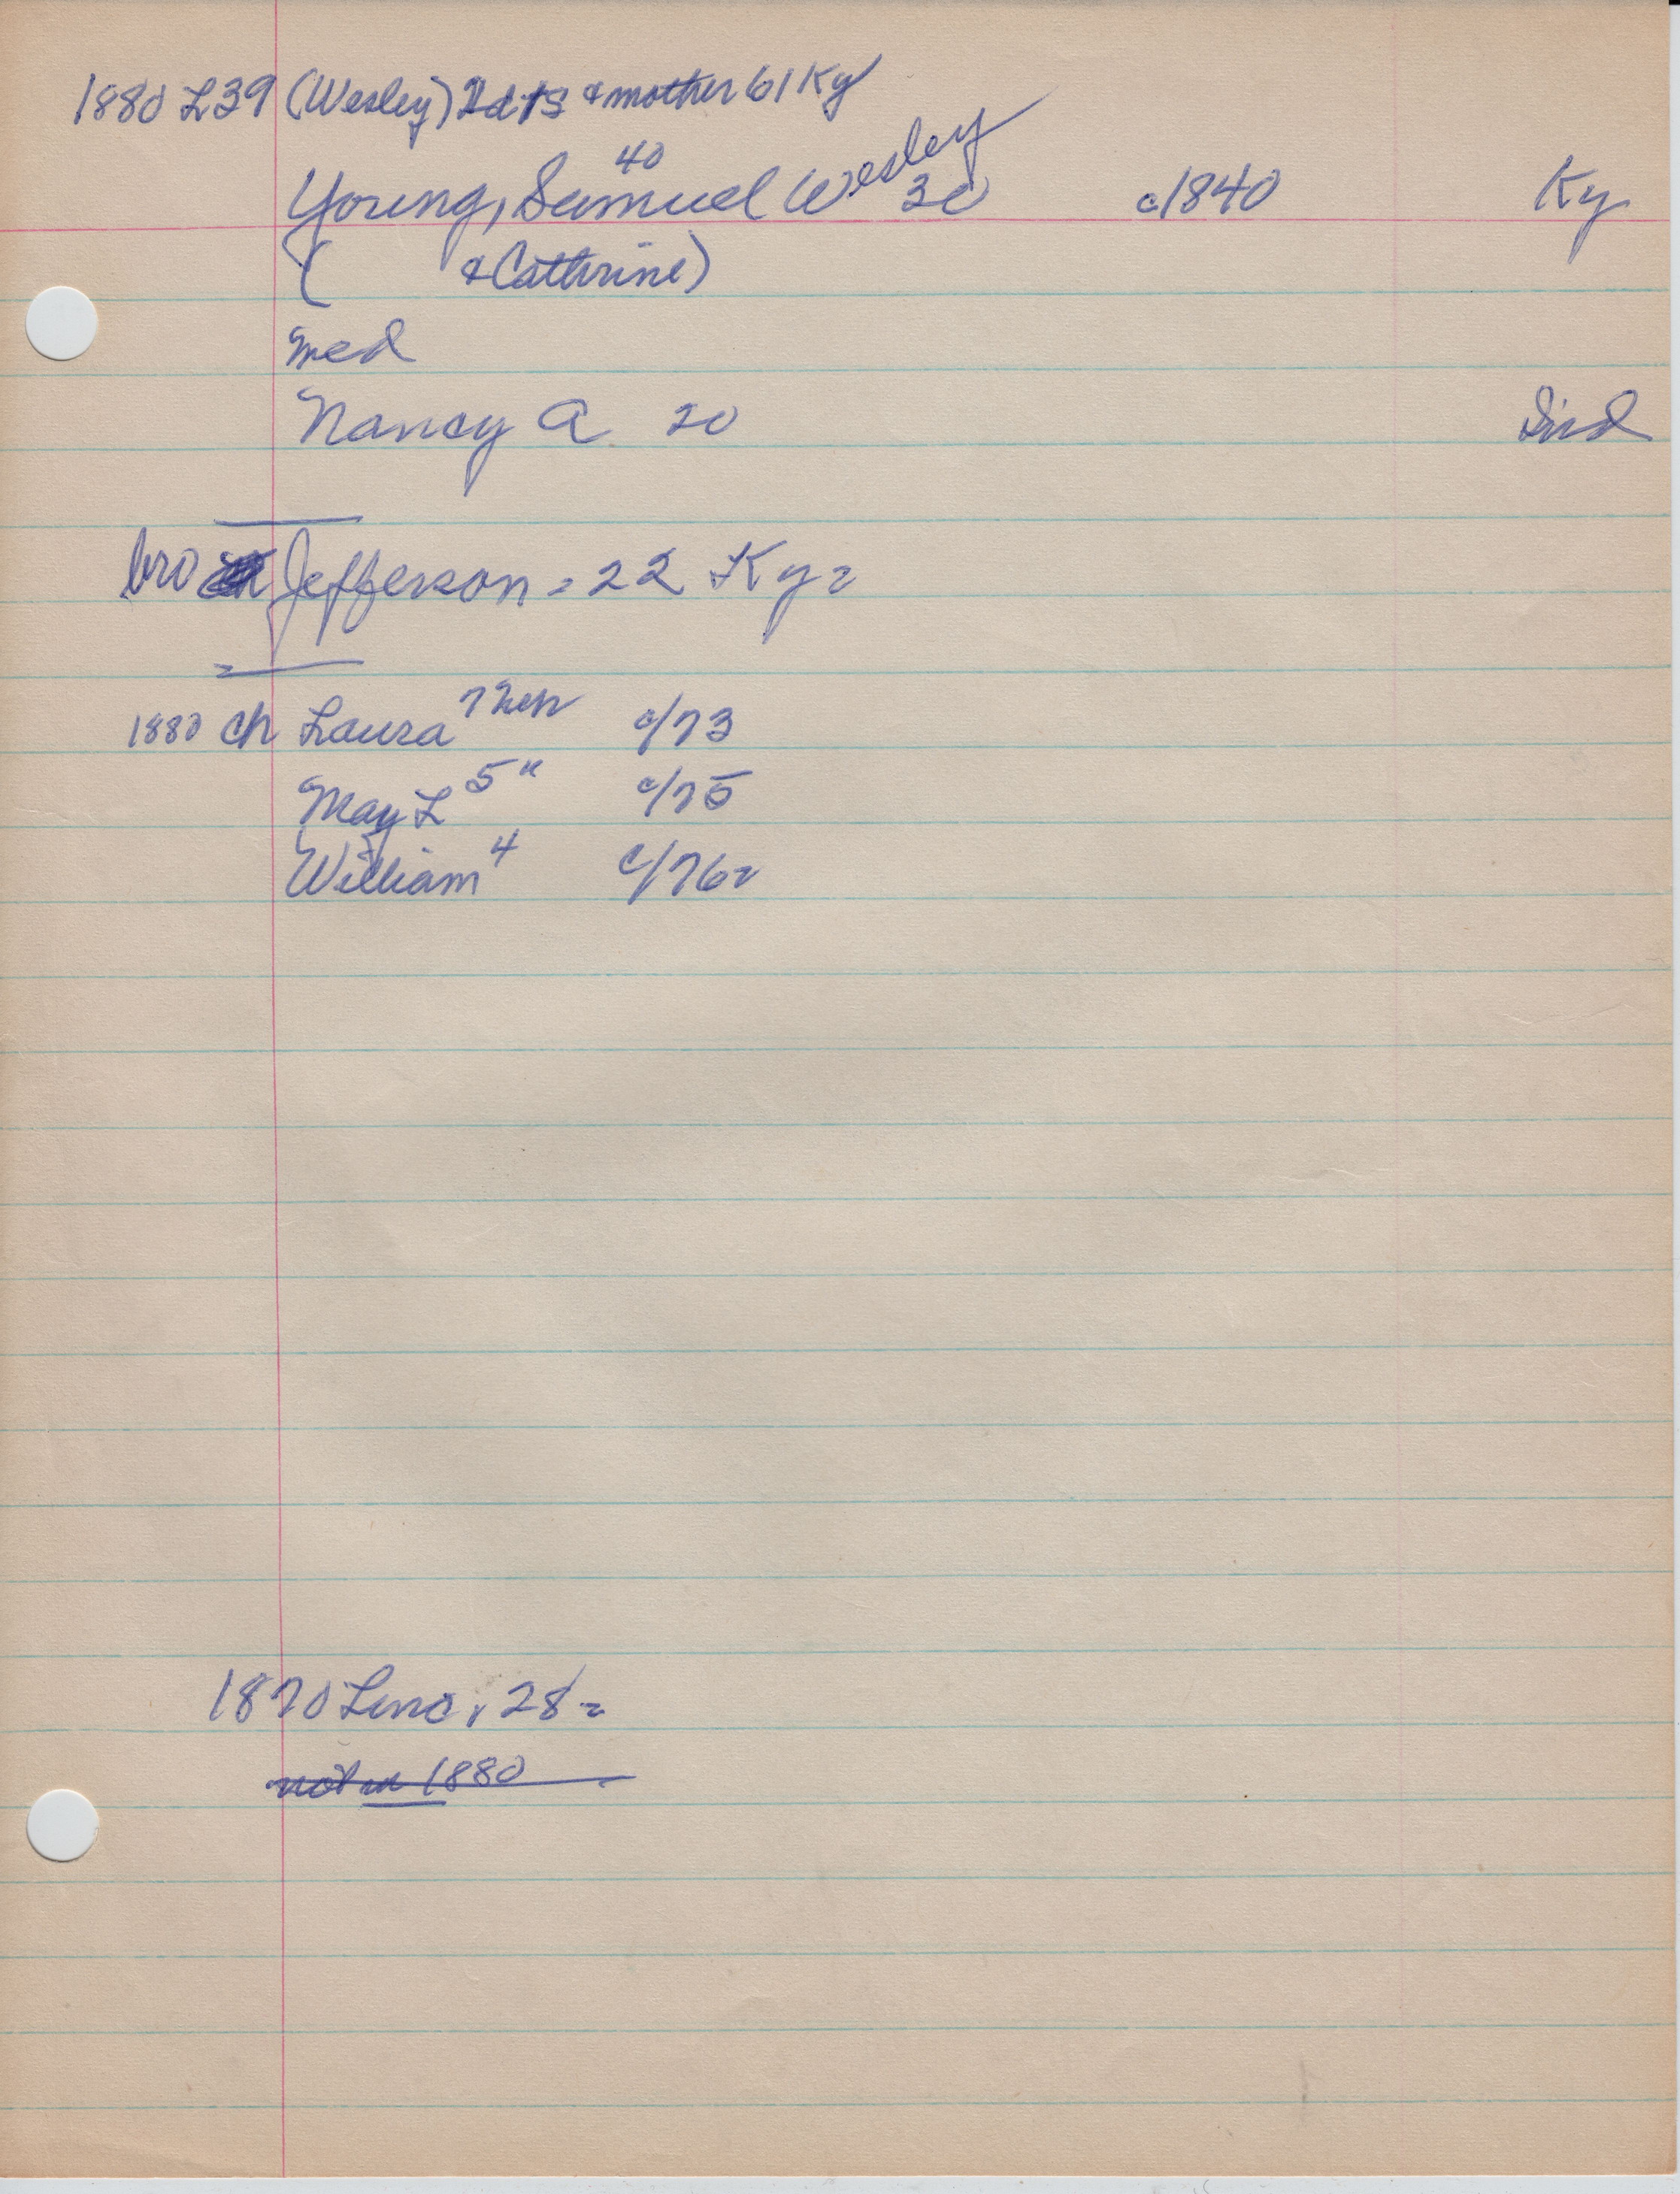 1880 L39 (Wesley) 2 d 1 S & mother 61 Ky
40
Young, Samuel Wesley 30 c1840 Ky
( & Cathrine)
med
Nancy A 20 Ind
bro Jefferson = 22 Ky =
1880 ch Laura 7 c/73
May L 5 " c/75
William 4 c/76 =
1870 Linc, 28 =
not in 1880